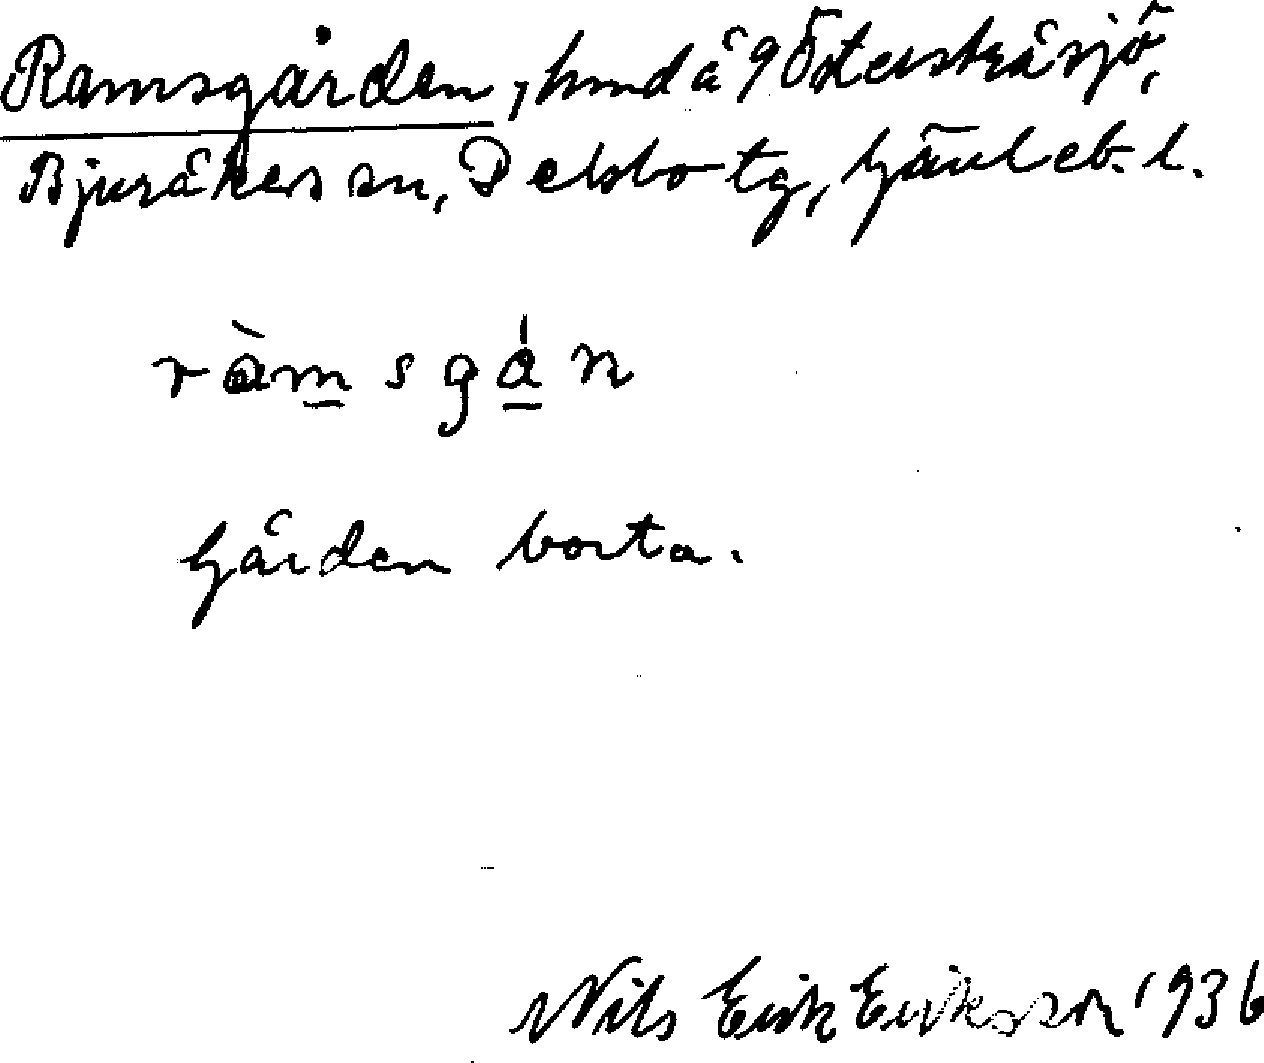 Ramsgården, hmd å 9 Österstråsjö,
Bjuråkers sn, Delsbo tg, Gävleb. l.
ràmsgá̱n
Gården borta.
Nils Erik Eriksson 1936